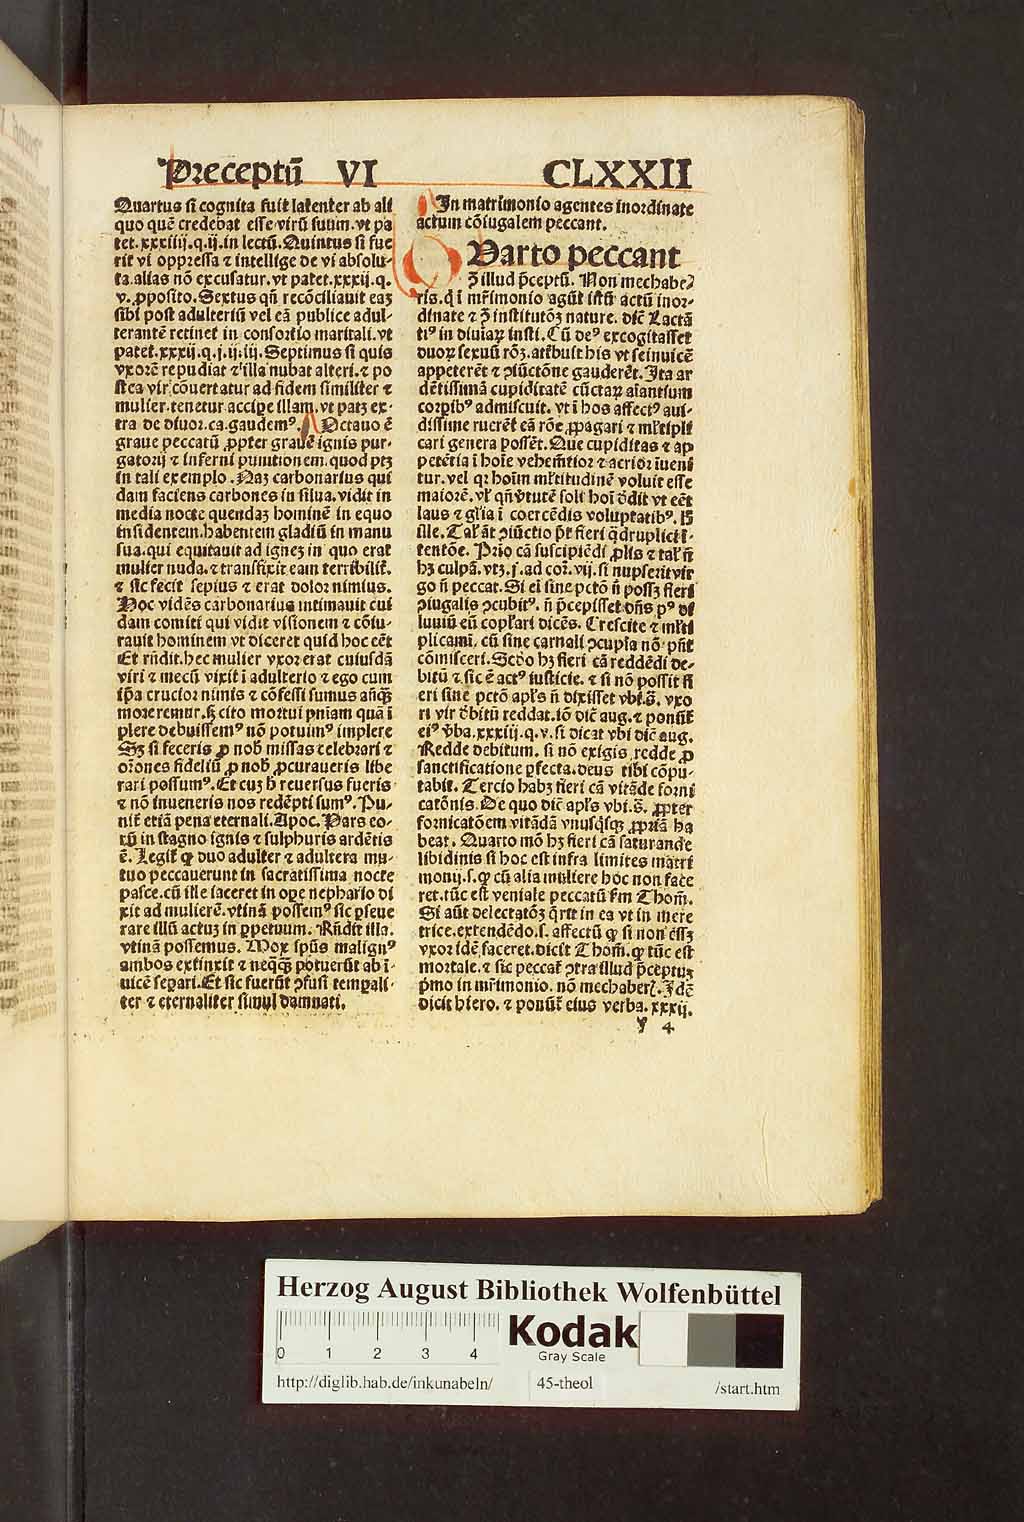 Preceptū VI CLXXII
Quartus si cognita fuit latenter ab ali
quo quē credebat esse virū suum. vt pa
tet. xxxiiij. q. ij. in lectū. Quintus si fue
rit vi oppressa ⁊ intellige de vi absolu-
ta. alias nō excusatur. vt patet. xxxij. q.
v. ꝓposito. Sextus qñ recōciliauit eaꝫ
sibi post adulteriū vel eā publice adul-
terantē retinet in consortio maritali. vt
patet. xxxij. q. j. ij. iij. Septimus si quis
vxorē repudiat ⁊ illa nubat alteri. ⁊ po
stea vir cōuertatur ad fidem similiter ⁊
mulier. tenetur accipe illam. vt patꝫ ex-
tra de diuor. ca. gaudemꝰ. Octauo ē
graue peccatū ꝓpter grauē ignis pur-
gatorij ⁊ inferni punitionem. quod ptꝫ
in tali exemplo. Naꝫ carbonarius qui
dam faciens carbones in silua. vidit in
media nocte quendaꝫ hominē in equo
insidentem. habentem gladiū in manu
sua. qui equitauit ad igneꝫ in quo erat
mulier nuda. ⁊ transfixit eam terribilit̄.
⁊ sic fecit sepius ⁊ erat dolor nimius.
Hoc vidēs carbonarius intimauit cui
dam comiti qui vidit visionem ⁊ cōiu-
rauit hominem vt diceret quid hoc eēt
Et rñdit. hec mulier vxor erat cuiusdā
viri ⁊ mecū vixit ī adulterio ⁊ ego cum
ip̄a crucior nimis ⁊ cōfessi sumus añqꝫ
moreremur. sꝫ cito mortui pniam quā ī
plere debuissemꝰ nō potuimꝰ implere
Sꝫ si feceris ꝓ nob̄ missas celebrari ⁊
orōnes fideliū ꝓ nob̄ ꝓcuraueris libe
rari possumꝰ. Et cuꝫ h̄ reuersus fueris
⁊ nō inueneris nos redēpti sumꝰ. Pu-
nit̄ etiā pena eternali. Apoc. Pars eo-
rū in stagno ignis ⁊ sulphuris ardētis
ē. Legit̄ ꝙ duo adulter ⁊ adultera mu-
tuo peccauerunt in sacratissima nocte
pasce. cū ille iaceret in ope nephario di
xit ad mulierē. vtinā possemꝰ sic ꝑseue
rare illū actuꝫ in ꝑpetuum. Rñdit illa.
vtinā possemus. Mox spūs malignꝰ
ambos extinxit ⁊ neqqꝫ potuerūt ab ī-
uicē separi. Et sic fuerūt ꝯfusi tempali-
ter ⁊ eternaliter simul damnati.
In matrimonio agentes inordinate
actum cōiugalem peccant.
Quarto peccant
ꝯ illud p̄ceptū. Non mechabe
ris. q̄ i mr̄imonio agūt istū actū inor-
dinate ⁊ ꝯ institutōꝫ nature. dic̄ Lactā
tiꝰ in diuiaꝝ insti. Cū deꝰ excogitasset
duoꝝ sexuū rōꝫ. attribuit his vt seinuicē
appeterēt ⁊ ꝯiūctōne gauderēt. Ita ar
dētissimā cupiditatē cūctaꝝ aīantium
corꝑibꝰ admiscuit. vt ī hos affectꝰ aui-
dissime ruerēt ea rōe ꝓpagari ⁊ ml̄tipli
cari genera possēt. Que cupiditas ⁊ ap
petētia ī hoīe vehemētior ⁊ acrior īueni
tur. vel qꝛ hoim ml̄titudinē voluit esse
maiorē. vl̄ qñ v̄tutē soli hoī dedit vt eēt
laus ⁊ gl̄ia ī coercēdis voluptatibꝰ.
ille. Tal̄ āt ꝯiūctio pt̄ fieri qdruplici ī-
tentōe. Prio cā suscipiēdi ꝓlis ⁊ tal̄ ñ
hꝫ culpā. vtꝫ. j. ad cor. vij. si nupserit vir
go ñ peccat. Si ei sine pctō ñ possꝫ fieri
ꝯiugalis ꝯcubitꝰ. ñ p̄cepisset dñs pꝰ di
luuiū eū copl̄ari dicēs. Crescite ⁊ ml̄ti
plicami. cū sine carnali ꝯcupl̄a nō pn̄t
cōmisceri. Scdo hꝫ fieri cā reddēdi de-
bitū ⁊ sic ē actꝰ iusticie. ⁊ si nō possit fi
eri sine pctō apl̄s ñ dixisset vbi. s̄. vxo
ri vir debitū reddat. iō dic̄ aug. ⁊ ponūt̄
eiꝰ v̄ba. xxxiij. q. v. si dicat vbi dic̄ aug.
Redde debitum. si nō exigis redde ꝓ
sanctificatione ꝑfecta. deus tibi cōpu-
tabit. Tercio habꝫ fieri cā vitāde forni
catōnis. De quo dic̄ apl̄s vbi. s̄. ꝓpter
fornicatōem vitādā vnusqisqꝫ ꝓpriā ha
beat. Quarto mō hꝫ fieri cā saturande
libidinis si hoc est infra limites matri
monij. s. ꝙ cū alia muliere hoc non face
ret. tūc est veniale peccatū fm Thom̄.
Si aūt delectatōꝫ q̄rit in ea vt in mere
trice. extendēdo. s. affectū ꝙ si non eēꝫ
vxor idē faceret. dicit Thom̄. ꝙ tūc est
mortale. ⁊ sic peccat ꝯtra illud p̄ceptuꝫ
p̄mo in mr̄imonio. nō mechaber̄. Idē
dicit hiero. ⁊ ponūt̄ eius verba. xxxij.
y 4
Herzog August Bibliothek Wolfenbüttel
0 1 2 3 4
Kodak
Gray Scale
http://diglib.hab.de/inkunabeln/ 45-theol /start.htm